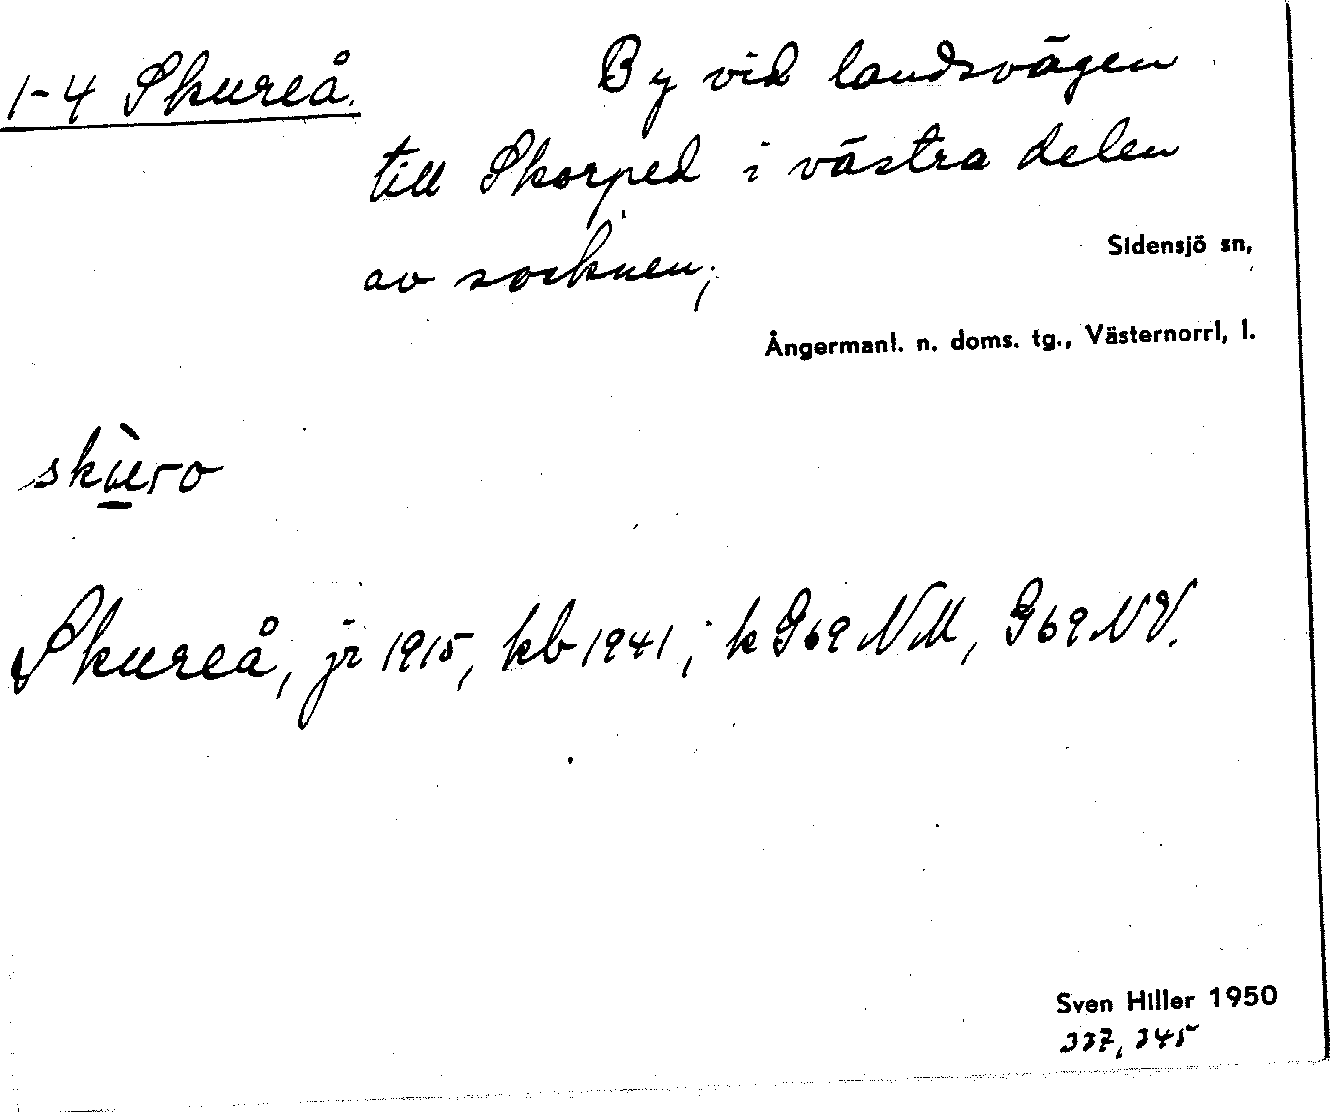 1-4 Skureå. By vid landsvägen
till Skorped i västra delen
av socknen;
Sidensjö sn,
Ångermanl. n. doms. tg., Västernorrl, l.
skùro
Skureå, jr 1915, kb 1941; k G69 NM, G69 NV.
Sven Hiller 1950
337, 345